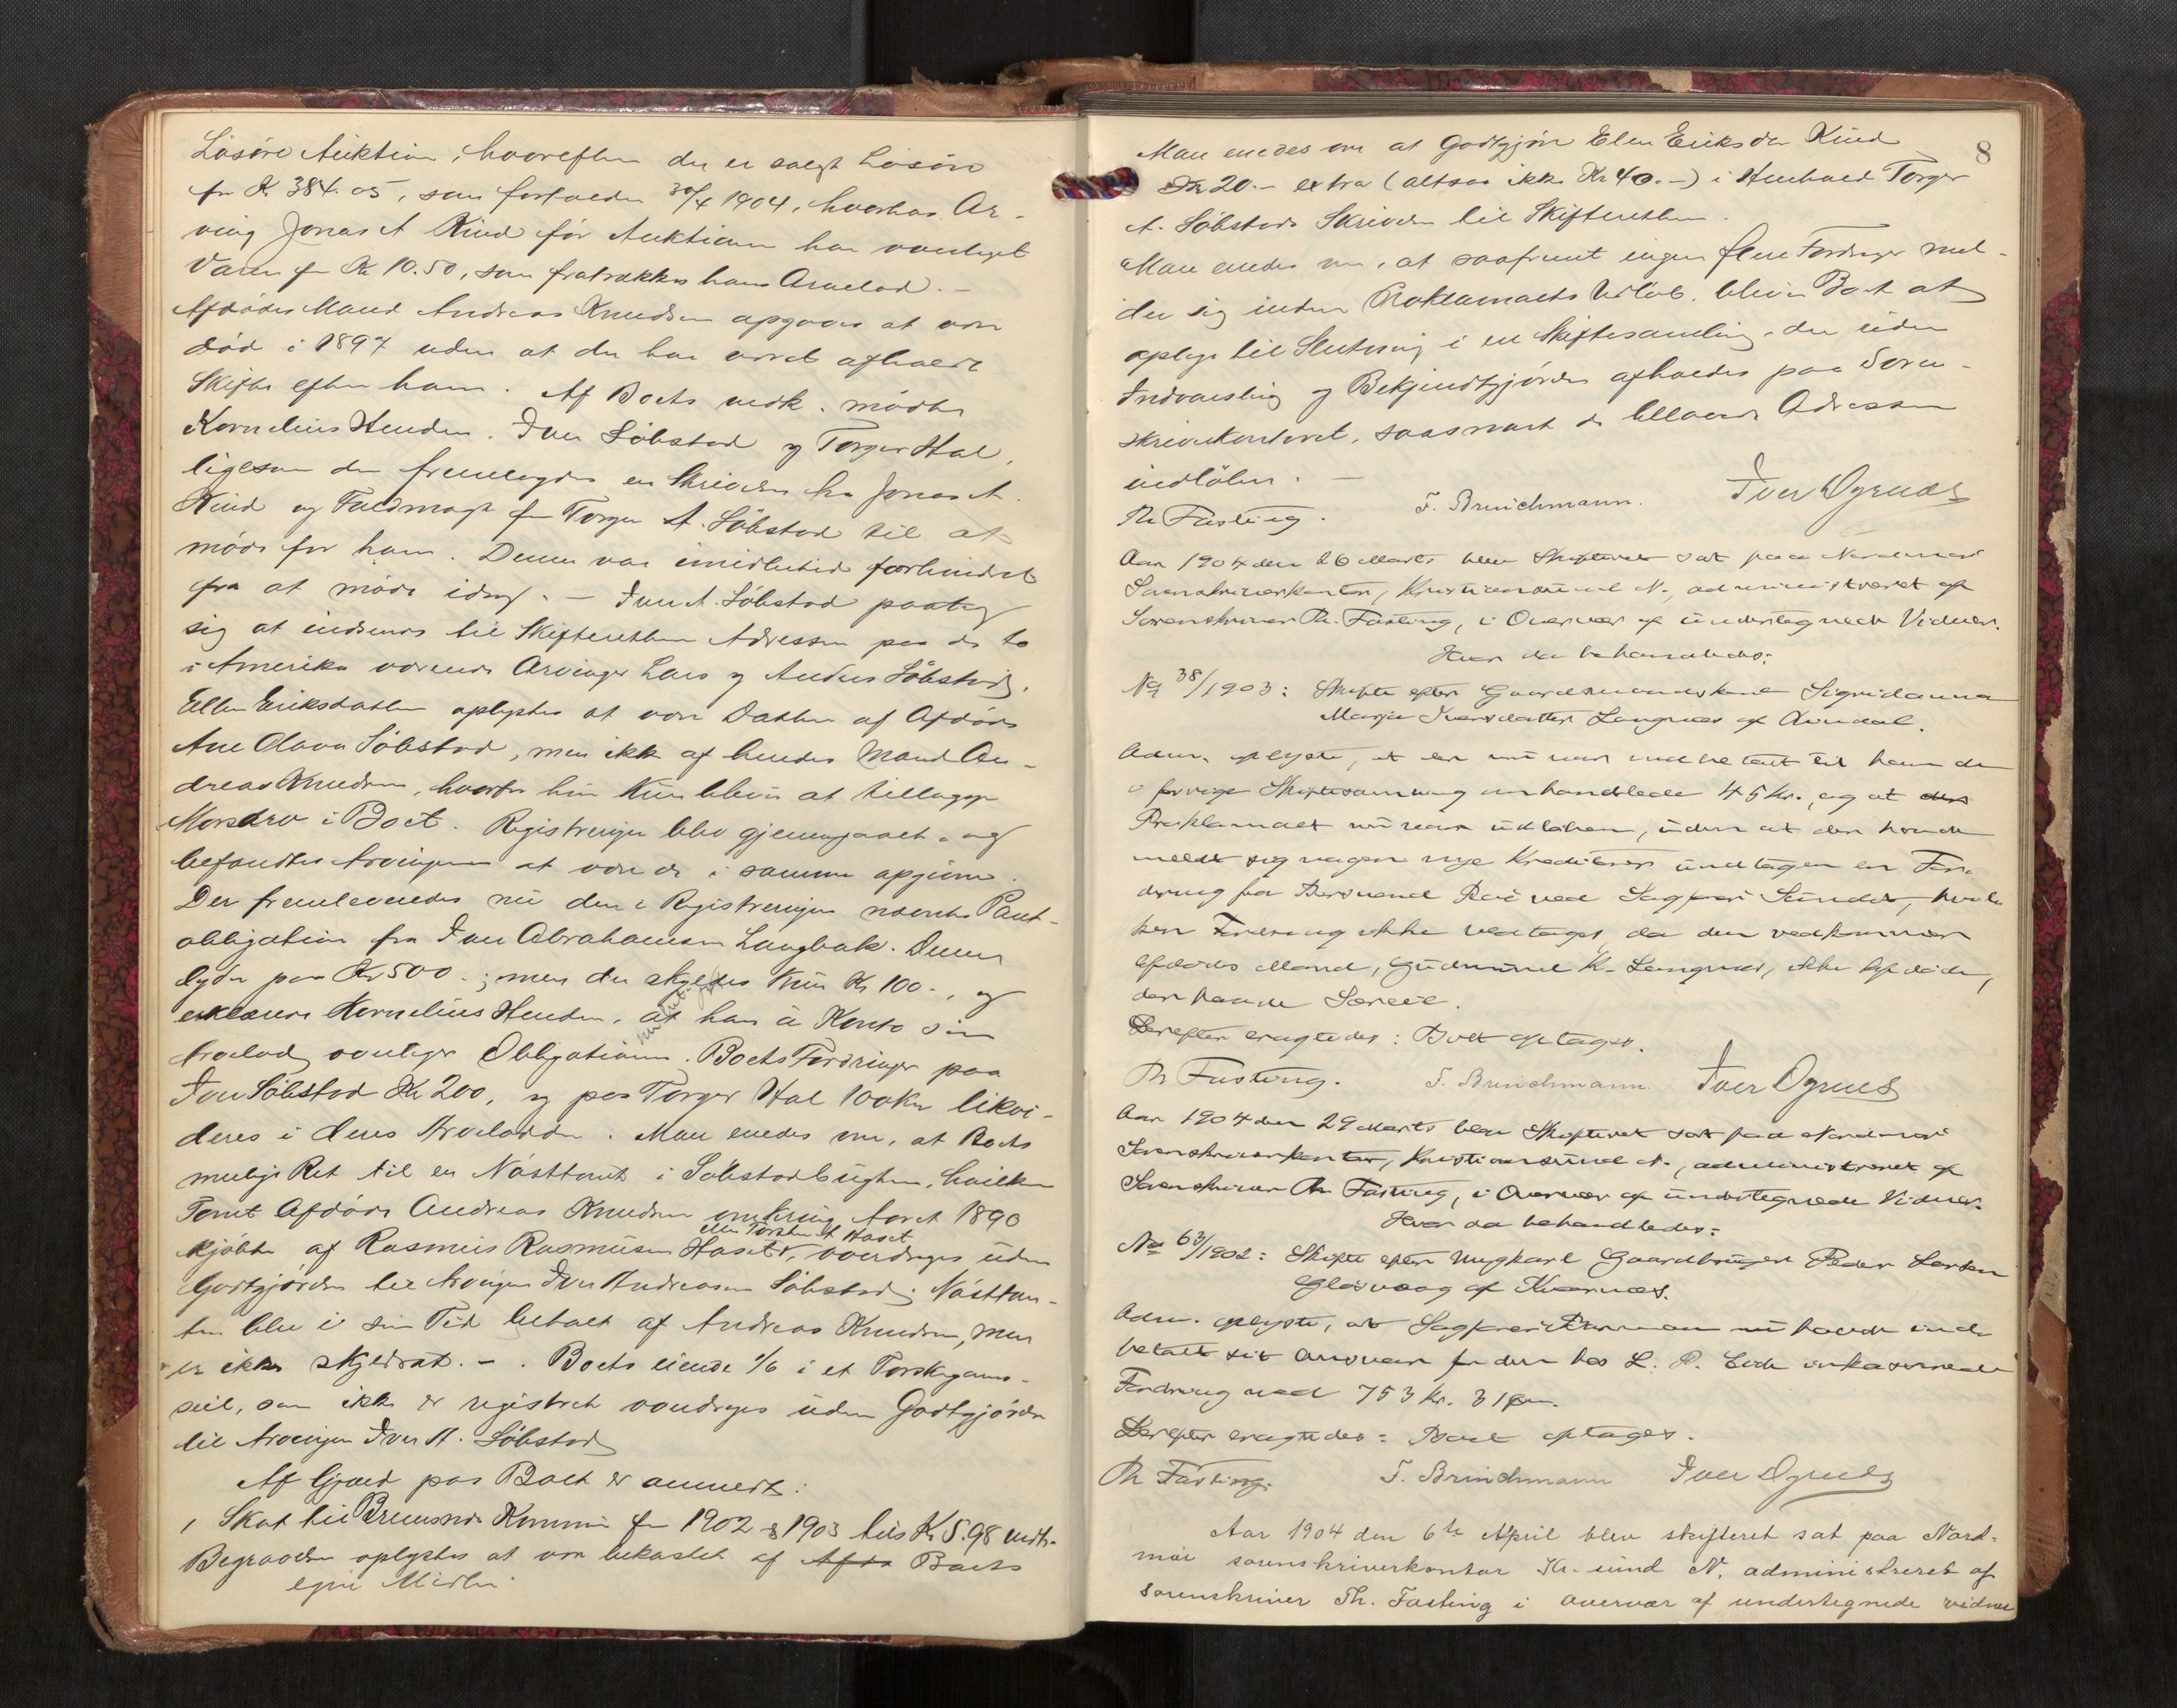 Løsøre Auktion, hvorefter der er solgt Løsøre
for Kr 384.05, som forfalder 30/4 1904, hvorhos Ar-
ving Jonas A Kind før Auktionen har overtaget
Varer for Kr 10.50, som fratrækkes hans Arvelod. –
Afdødes Mand Andreas Knudsen opgives at være
død i 1897 uden at der har været afholdt
Skifte efter ham. Af Boets vedk. mødte
Kornelius Henden, Iver Löbstad og Torger Hol,
ligesom der fremlagdes en Skrivelse fra Jonas A.
Kind og Fuldmagt fra Torger A. Löbstad til at
møde for ham. Denne var imidlertid forhindret
fra at møde idag. – Iver A. Löbstad paatog
sig at indsende til Skifteretten Adressen paa de to
i Amerika værende Arvinger Lars og Anders Löbstad.
Ellen Eriksdatter oplystes at være Datter af Afdøde
Ane Olava Löbstad, men ikke af hendes Mand An-
dreas Knudsen, hvorfor hun kun bliver at tillægge
Morsarv i Boet. Registreringen blev gjennemgaaet og
befandtes Arvingerne at være de i samme opgivne.
Der fremlevertes nu den i Registreringen nævnte Pant-
obligation fra Iver Abrahamsen Langbak. Denne
lyder paa Kr 500.-; men der skyldes kun Kr 100.-, og
erklærer Kornelius Henden, at han à Konto sin
Arvelod overtager Obligationen. Boets Fordringer paa
Iver Löbstad Kr 200, og paa Torger Hol 100 Kr likvi-
deres i deres Arvelodder. Man enedes om, at Boets
mulige Ret til en Nøsttomt i Löbstadbugten, hvilken
Tomt Afdøde Andreas Knudsen omkring Aaret 1890
eller Torsten A Haset
kjøbte af Rasmus Rasmussen Haset, overdrages uden
Godtgjørelse til Arvingen Iver Andreassen Löbstad. Nøsttom-
ten blev i sin Tid betalt af Andreas Knudsen, men
er ikke skjødsat. – . Boets eiende 1/6 i et Torskegarns-
seil, som ikke er registreret overdrages uden Godtgjørelse
til Arvingen Iver A. Löbstad
Af Gjæld paa Boet er anmeldt:
1 Skat til Bremsnes Kommune for 1902 & 1903 tils Kr 5.98 vedt.
Begravelsen oplystes at være bekostet af Afdø Boets
egne Midler.
8
Man enedes om at godtgjøre Elen Eriksdtr Kind
Kr 20.- extra (altsaa ikke Kr 40.-) i Henhold Torger
A. Löbstads Skrivelse til Skifteretten.
Man enedes om, at saafremt ingen flere Fordringer mel-
der sig inden Proklamaets Udløb, bliver Boet at
optage til Slutning i en Skiftesamling, der uden
Indvarsling og Bekjendtgjørelse afholdes paa Soren-
skriverkontoret, saasnart de tillovede Adresser
indløber. –
Th Fasting. F. Brinchmann. Iver Ögnæs
Aar 1904 den 26 Marts blev Skifteret sat paa Nordmøre
Sorenskriverkontor, Kristiansund N., administreret af
Sorenskriver Th. Fasting, i Overvær af undertegnede Vidner.
Hvor da behandledes:
No 38/1903: Skifte efter Gaardmandskone Sigridanna
Marja Iversdatter Langnes af Aundal.
Adm. oplyste, at der nu var indbetalt til ham de
i forrige Skiftesamling omhandlede 45 Kr., og at des
Proklamaet nu var udløben, uden at der havde
meldt sig nogen nye Kreditorer undtagen en For-
dring fra Bersvend Bøe ved Sagfører Sunde, hvil-
ken Fordring ikke vedtages, da den vedkommer
Afdødes Mand, Gudmund K. Langnes, ikke Afdøde,
der havde Særeie.
Derefter eragtedes: Boet optages.
Th Fasting. F. Brinchmann. Iver Ögnæs
Aar 1904 den 29 Marts blev Skifteret sat paa Nordmøre
Sorenskriverkontor, Kristiansund N., administreret af
Sorenskriver Th Fasting, i Overvær af undertegnede Vidner.
Hvor da behandledes:
No 63/1902: Skifte efter Ungkarl Gaardbruger Peder Larsen
Gløsvaag af Kvernæs.
Adm. oplyste, at Sagfører nu havde ind-
betalt sit Ansvar for den hos L. P. Eide inkasserede
Fordring med 753 Kr. 31 Øre.
Derefter eragtedes: Boet optages.
Th Fasting. F. Brinchmann Iver Ögnæs
Aar 1904 den 6te April blev skifteret sat paa Nord-
møre sorenskriverkontor Kr.sund N. administreret af
sorenskriver Th. Fasting i overvær af undertegnede vidner